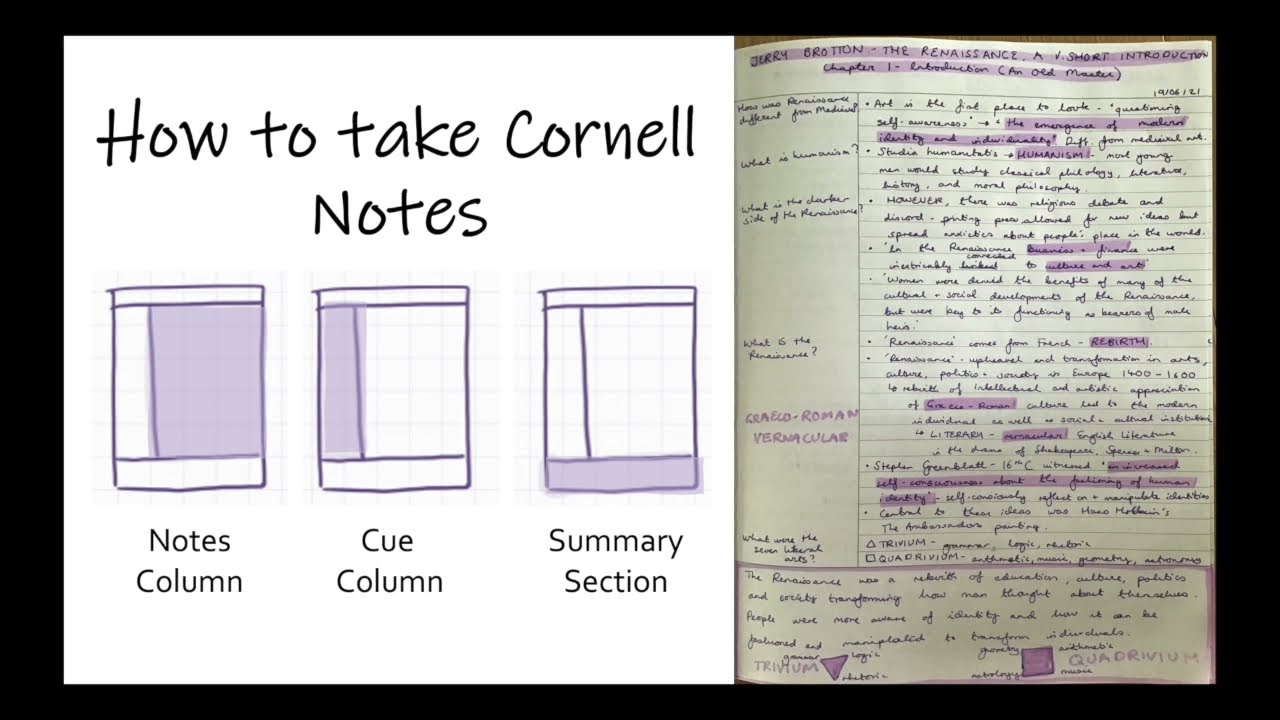 How to take Cornell
Notes
Notes
Column
Cue
Column
Summary
Section
JERRY BROTTON - THE RENAISSANCE, A V. SHORT INTRODUCTION
Chapter 1 - Introduction (An Old Master)
19/06/21
How was Renaissance
different from Medieval?
What is humanism?
What is the darker
side of the Renaissance?
What is the
Renaissance?
GRAECO-ROMAN
VERNACULAR
What were the
seven liberal
arts?
• Art is the first place to look - 'questioning
self-awareness' → 'the emergence of modern
identity and individuality' Diff. from medieval art.
• Studia humanitatis → HUMANISM - most young
men would study classical philology, literature,
history, and moral philosophy.
• HOWEVER, there was religious debate and
discord - printing press allowed for new ideas but
spread anxieties about people's place in the world.
• 'In the Renaissance business + finance were
connected
inextricably linked to culture and art'
• 'Women were denied the benefits of many of the
cultural + social developments of the Renaissance,
but were key to its functioning as bearers of male
heirs.'
• 'Renaissance' comes from French - REBIRTH.
• 'Renaissance' - upheaval and transformation in arts,
culture, politics + society in Europe 1400-1600
↳ rebirth of intellectual and artistic appreciation
of Graeco-Roman culture led to the modern
individual as well as social + cultural institutions
↳ LITERARY - vernacular English Literature
in the drama of Shakespeare, Spenser + Milton.
• Stephen Greenblatt - 16th C witnessed 'an increased
self-consciousness about the fashioning of human
identity' - self-consciously reflect on + manipulate identities
• Central to these ideas was Hans Holbein's
The Ambassadors painting.
△ TRIVIUM - grammar, logic, rhetoric
□ QUADRIVIUM - arithmatic, music, geometry, astronomy
The Renaissance was a rebirth of education, culture, politics
and society transforming how man thought about themselves.
People were more aware of identity and how it can be
fashioned and manipulated to transform individuals.
grammar logic
TRIVIUM
rhetoric
geometry arithmetic
QUADRIVIUM
astrology music